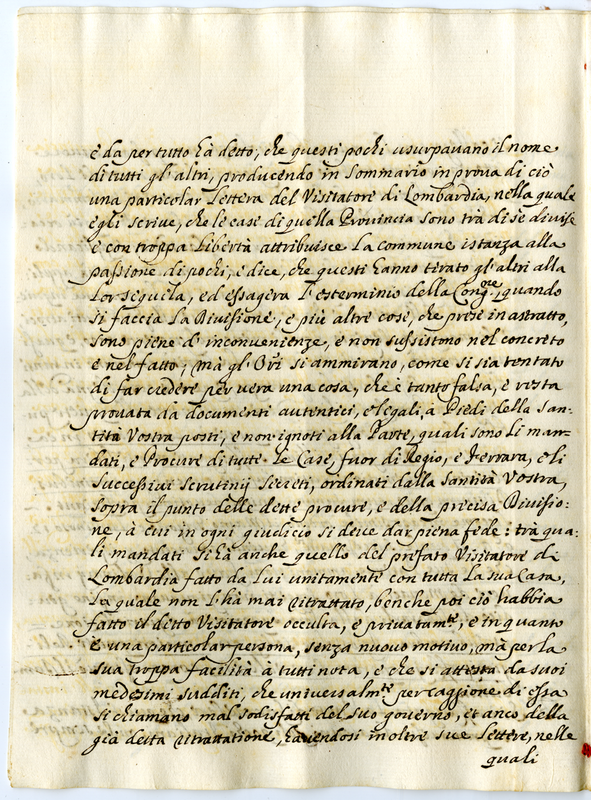 e da per tutto hà detto, che questi pochi usurpavano il nome
di tutti gl'altri, producendo in Sommario in prova di ciò
una particolar Lettera del Visitatore di Lombardia, nella quale
egli scrive, che le case di quella Provincia sono trà di sè divise
e con troppa Libertà attribuisce La commune istanza alla
passione di pochi, e dice, che questi hanno tirato gl'altri alla
Lor sequela, ed essagera L'esterminio della Cong.ne, quando
si faccia La Divisione, e più altre cose, che prese in astratto,
sono piene d'inconvenienze, e non sussistono nel concreto
e nel fatto; mà gl'Ori si ammirano, come si sia tentato
di far credere per vera una cosa, che è tanto falsa, e resta
provata da documenti autentici, e legali, à Piedi della San-
tità Vostra posti, e non ignoti alla Parte, quali sono Li man-
dati, e Procure di tutte Le Case, fuor di Regio, e Ferrara, e li
successivi scrutinij secreti, ordinati dalla Santità Vostra,
sopra il punto delle dette procure, e della precisa Divisio-
ne, à cui in ogni giudicio si deve dar piena fede: trà qua-
li mandati si hà anche quello del prefato Visitatore di
Lombardia fatto da Lui unitamente con tutta La sua Casa,
La quale non L'hà mai ritrattato, benche poi ciò habbia
fatto il detto Visitatore occulta, e privatam.te, e in quanto
è una particolar persona, senza nuovo motivo, mà per la
sua troppa facilità à tutti nota, e che si attesta da suoi
medesimi sudditi, che universalm.te per caggione di essa
si chiamano mal sodisfatti del suo governo, et anco della
già detta ritrattatione, havendosi inoltre sue Lettere, nelle
quali